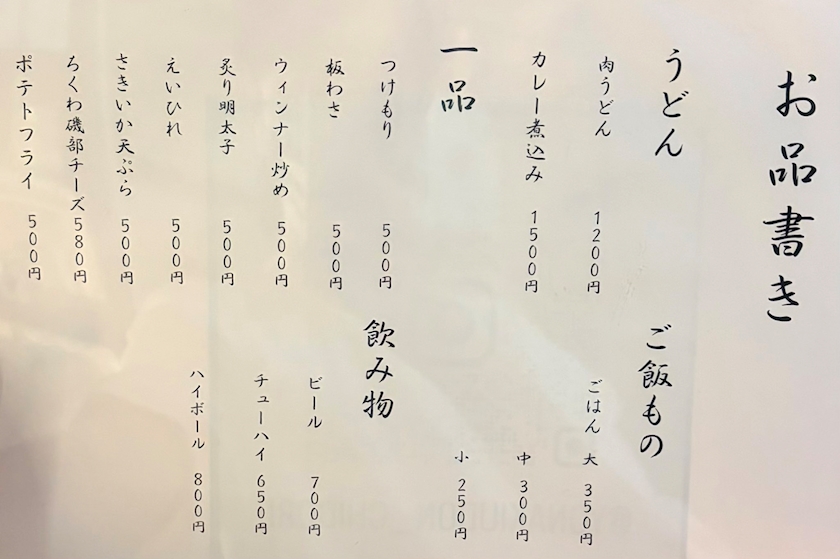 お品書き
うどん
肉うどん 1200円
カレー煮込み 1500円
一品
つけもり 500円
板わさ 500円
ウィンナー炒め 500円
炙り明太子 500円
えいひれ 500円
さきいか天ぷら 500円
ちくわ磯部チーズ 580円
ポテトフライ 500円
ご飯もの
ごはん 大 350円
中 300円
小 250円
飲み物
ビール 700円
チューハイ 650円
ハイボール 800円